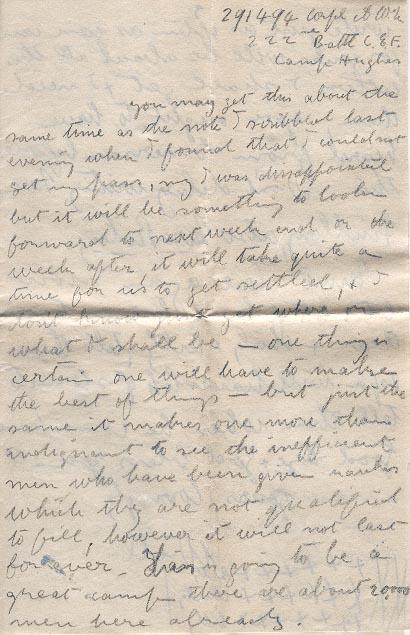 291494 Corpl
222nd Batt C.E.F.
Camp Hughes
you may get this about the
same time as the note I scribbled last
evening when I found that I could not
get my pass, my I was dissappointed
but it will be something to look
forward to next week end or the
week after, it will take quite a
time for us to get settled, & I
don't know just yet where or
what I shall be — one thing is
certain one will have to make
the best of things — but just the
same it makes one more than
indignant to see the inefficient
men who have been given ranks
which they are not qualified
to fill, however it will not last
for ever. This is going to be a
great camp there are about 20,000
men here already.